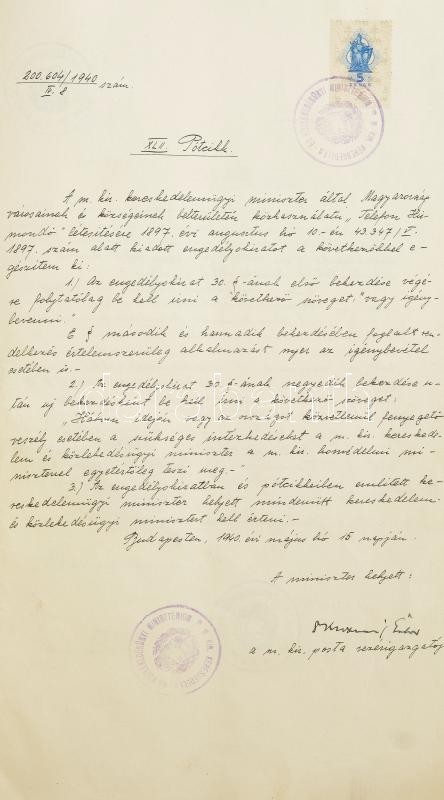 200.604/1940 szám.
IV. 8
5
PENGŐ
XLII. Pótcikk.
A m. kir. kereskedelemügyi miniszter által Magyarország
városainak és községeinek belterületén közhasználatu „Telefon Hir-
mondó" létesitésére 1897. évi augusztus hó 10.-én 43.347/I.
1897. szám alatt kiadott engedélyokiratot a következőkkel e-
gészitem ki:
1.) Az engedélyokirat 30. §-ának első bekezdése végé-
re folytatólag be kell irni a következő szöveget „vagy igény-
bevenni."
E § második és harmadik bekezdésében foglalt ren-
delkezés értelemszerüleg alkalmazást nyer az igénybevétel
esetében is.-
2.) Az engedélyokirat 30. §-ának negyedik bekezdése u-
tán uj bekezdésként be kell irni a következő szöveget:
„Háboru idején vagy az országot közvetlenül fenyegető
veszély esetében a szükséges intézkedéseket a m. kir. kereske-
delem és közlekedésügyi miniszter a m. kir. honvédelmi mi-
niszterrel egyetértőleg teszi meg.-"
3.) Az engedélyokiratban és pótcikkeiben emlitett ke-
reskedelemügyi miniszter helyett mindenütt kereskedelem-
és közlekedésügyi minisztert kell érteni.-
Budapesten, 1940. évi május hó 15 napján.
A miniszter helyett:
Gábor
a m. kir. posta vezérigazgatója